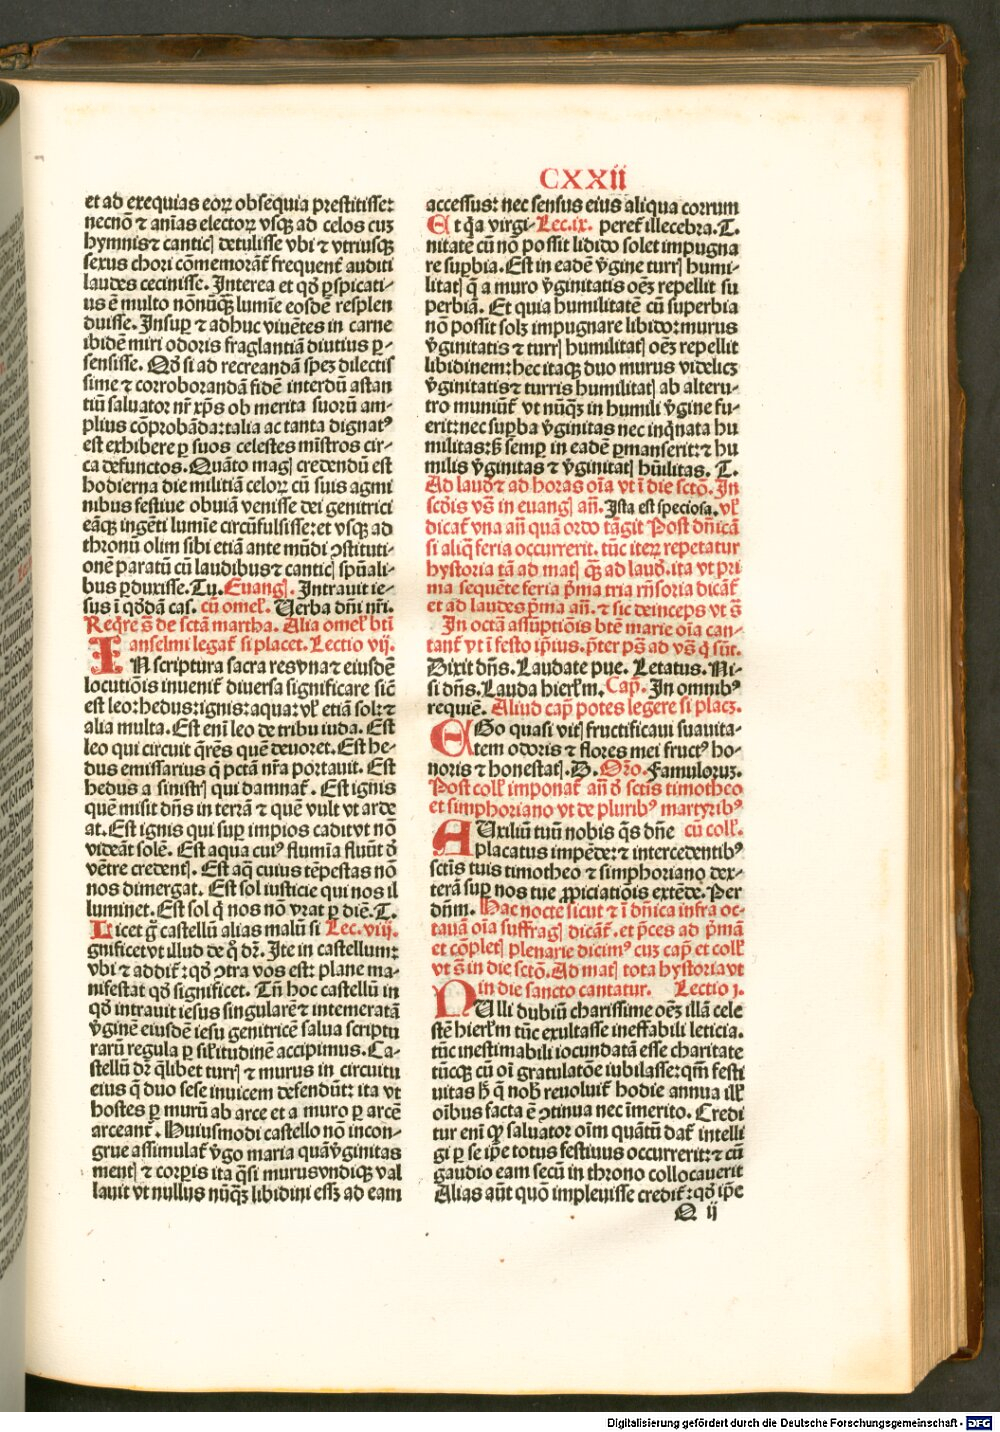 CXXII
et ad exequias eoꝝ obsequia prestitisse:
necnō ⁊ aīas electoꝝ vsqꝫ ad celos cuꝫ
hymnis⁊ canticꝭ detulisse vbi ⁊ vtriusqꝫ
sexus chori cōmemorāt̃ frequent̃ auditi
laudes cecinisse. Interea et qō ꝑspicati-
us ē multo nōnūqꝫ lumīe eosdē resplen
duisse. Insuꝑ ⁊ adhuc viuētes in carne
ibidē miri odoris fraglantiā diutius ꝑ-
sensisse. Qō si ad recreandā speꝫ dilectis
sime ⁊ corroborandā fidē interdū astan
tiū saluator nr̄ xp̄s ob merita suorū am-
plius cōprobāda: talia ac tanta dignatꝰ
est exhibere ꝑ suos celestes mīstros cir-
ca defunctos. Quāto magꝭ credendū est
hodierna die militiā celoꝝ cū suis agmi
nibus festiue obuiā venisse dei genitrici
eāqꝫ ingēti lumīe circūfulsisse: et vsqꝫ ad
thronū olim sibi etiā ante mūdi ꝯstituti-
onē paratū cū laudibus⁊ canticꝭ spūali-
bus ꝑduxisse. Tu. Euangꝭ. Intrauit ie-
sus ī qōdā cas. cū omel̃. Verba dn̄i nr̄i.
Reqͥre s̄ de sctā martha. Alia omel̃ bt̄i
anselmi legat̃ si placet. Lectio vij.
IN scriptura sacra res vna⁊ eiusdē
locutiōis inuenit̃ diuersa significare sic̄
est leo: hedus: ignis: aqua: vl̃ etiā sol: ⁊
alia multa. Est enī leo de tribu iuda. Est
leo qui circuit q̄rēs quē deuoret. Est he-
dus emissarius q̄ pctā nr̄a portauit. Est
hedus a sinistrꝭ qui damnat̃. Est ignis
quem misit dn̄s in terrā ⁊ quē vult vt arde
at. Est ignis qui suꝑ impios cadit vt nō
videāt solē. Est aqua cuiꝰ flumīa fluūt d̄
vētre credentꝭ. Est aq̄ cuius tēpestas nō
nos dimergat. Est sol iusticie qui nos il
luminet. Est sol q̄ nos nō vrat ꝑ diē. T.
Licet g̃ castellū alias malū si Lec. viij.
gnificet vt illud de q̊ dr̄. Ite in castellum:
vbi ⁊ addit̃: qō ꝯtra vos est: plane ma-
nifestat qō significet. Tn̄ hoc castellū in
qō intrauit iesus singulare⁊ intemeratā
v̄ginē eiusdē iesu genitricē salua scriptu
rarū regula ꝑ sil̃itudinē accipimus. Ca-
stellū dr̄ q̄libet turrꝭ ⁊ murus in circuitu
eius q̄ duo sese inuicem defendūt: ita vt
hostes ꝑ murū ab arce et a muro ꝑ arcē
arceant̃. Huiusmodi castello nō incon-
grue assimulat̃ v̄go maria quā v̄ginitas
mentꝭ ⁊ corꝑis ita q̄si murus vndiqꝫ val
lauit vt nullus nūqꝫ libidini essꝫ ad eam
accessus: nec sensus eius aliqua corrum
Et qͥa virgi- Lec. ix. peret̃ illecebra. T.
nitatē cū nō possit libido solet impugna
re suꝑbia. Est in eadē v̄gine turrꝭ humi-
litatꝭ q̄ a muro v̄ginitatis oēꝫ repellit su
perbiā. Et quia humilitatē cū superbia
nō possit solꝫ impugnare libido: murus
v̄ginitatis ⁊ turrꝭ humilitatꝭ oēꝫ repellit
libidinem: hec itaqꝫ duo murus videlicꝫ
v̄ginitatis⁊ turris humilitatꝭ ab alteru-
tro muniūt̃ vt nūqꝫ in humili v̄gine fu-
erit: nec suꝑba v̄ginitas nec inqͥnata hu
militas: sꝫ semꝑ in eadē ꝑmanserit: ⁊ hu
milis v̄ginitas ⁊ v̄ginitatꝭ hūilitas. T.
Ad laud̃ ⁊ ad horas oīa vt ī die sctō. In
scd̄is vs̄ in euangꝭ an̄. Ista est speciosa. vl̃
dicat̃ vna an̄ quā ordo tāgit Post dn̄icā
si aliq̄ feria occurrerit. tūc iteꝝ repetatur
hystoria tā ad matꝭ q̄ꝫ ad laud̃. ita vt pri
ma sequēte feria pͥma tria rn̄soria dicāt̃
et ad laudes pͥma an̄. ⁊ sic deinceps vt s̄
In octā assūptiōis btē marie oīa can-
tant̃ vt ī festo ip̄ius. p̄ter ps̄ ad vs̄ q̄ sūt.
Dixit dn̄s. Laudate pue. Letatus. Ni-
si dn̄s. Lauda hierl̃m. Cap̃. In omnibꝰ
requiē. Aliud cap̃ potes legere si placꝫ.
EGo quasi vitꝭ fructificaui suauita-
tem odoris ⁊ flores mei fructꝰ ho-
noris ⁊ honestatꝭ. D. Oro. Famuloruꝫ.
Post coll̃ imponat̃ an̄ d̄ sctis timotheo
et simphoriano vt de pluribꝰ martyribꝰ
AUxiliū tuū nobis q̄s dn̄e cū coll̃.
placatus impēde: ⁊ intercedentibꝰ
sctis tuis timotheo ⁊ simphoriano dex-
terā suꝑ nos tue ꝓpiciatiōis extēde. Per
dn̄m. Hac nocte sicut ⁊ ī dn̄ica infra oc-
tauā oīa suffragꝭ dicāt̃. et p̄ces ad pͥmā
et cōpletꝭ plenarie dicimꝰ cuꝫ cap̃ et coll̃
vt s̄ in die sctō. Ad matꝭ tota hystoria vt
in die sancto cantatur. Lectio j.
NUlli dubiū charissime oēs illā cele
stē hierl̃m tūc exultasse ineffabili leticia.
tūc inestimabili iocundatā esse charitate
tūcqꝫ cū oī gratulatōe iubilasse: qm̄ festi
uitas h̄ q̄ nob̃ reuoluit̃ hodie annua ill̃
oībus facta ē ꝯtinua nec īmerito. Credi
tur enī qꝙ saluator oīm quātū dat̃ intelli
gi ꝑ se ip̄e totus festiuus occurrerit: ⁊ cū
gaudio eam secū in throno collocauerit
Alias aūt quō impleuisse credit̃: qō ip̄e
Q ij
Digitalisierung gefördert durch die Deutsche Forschungsgemeinschaft - DFG